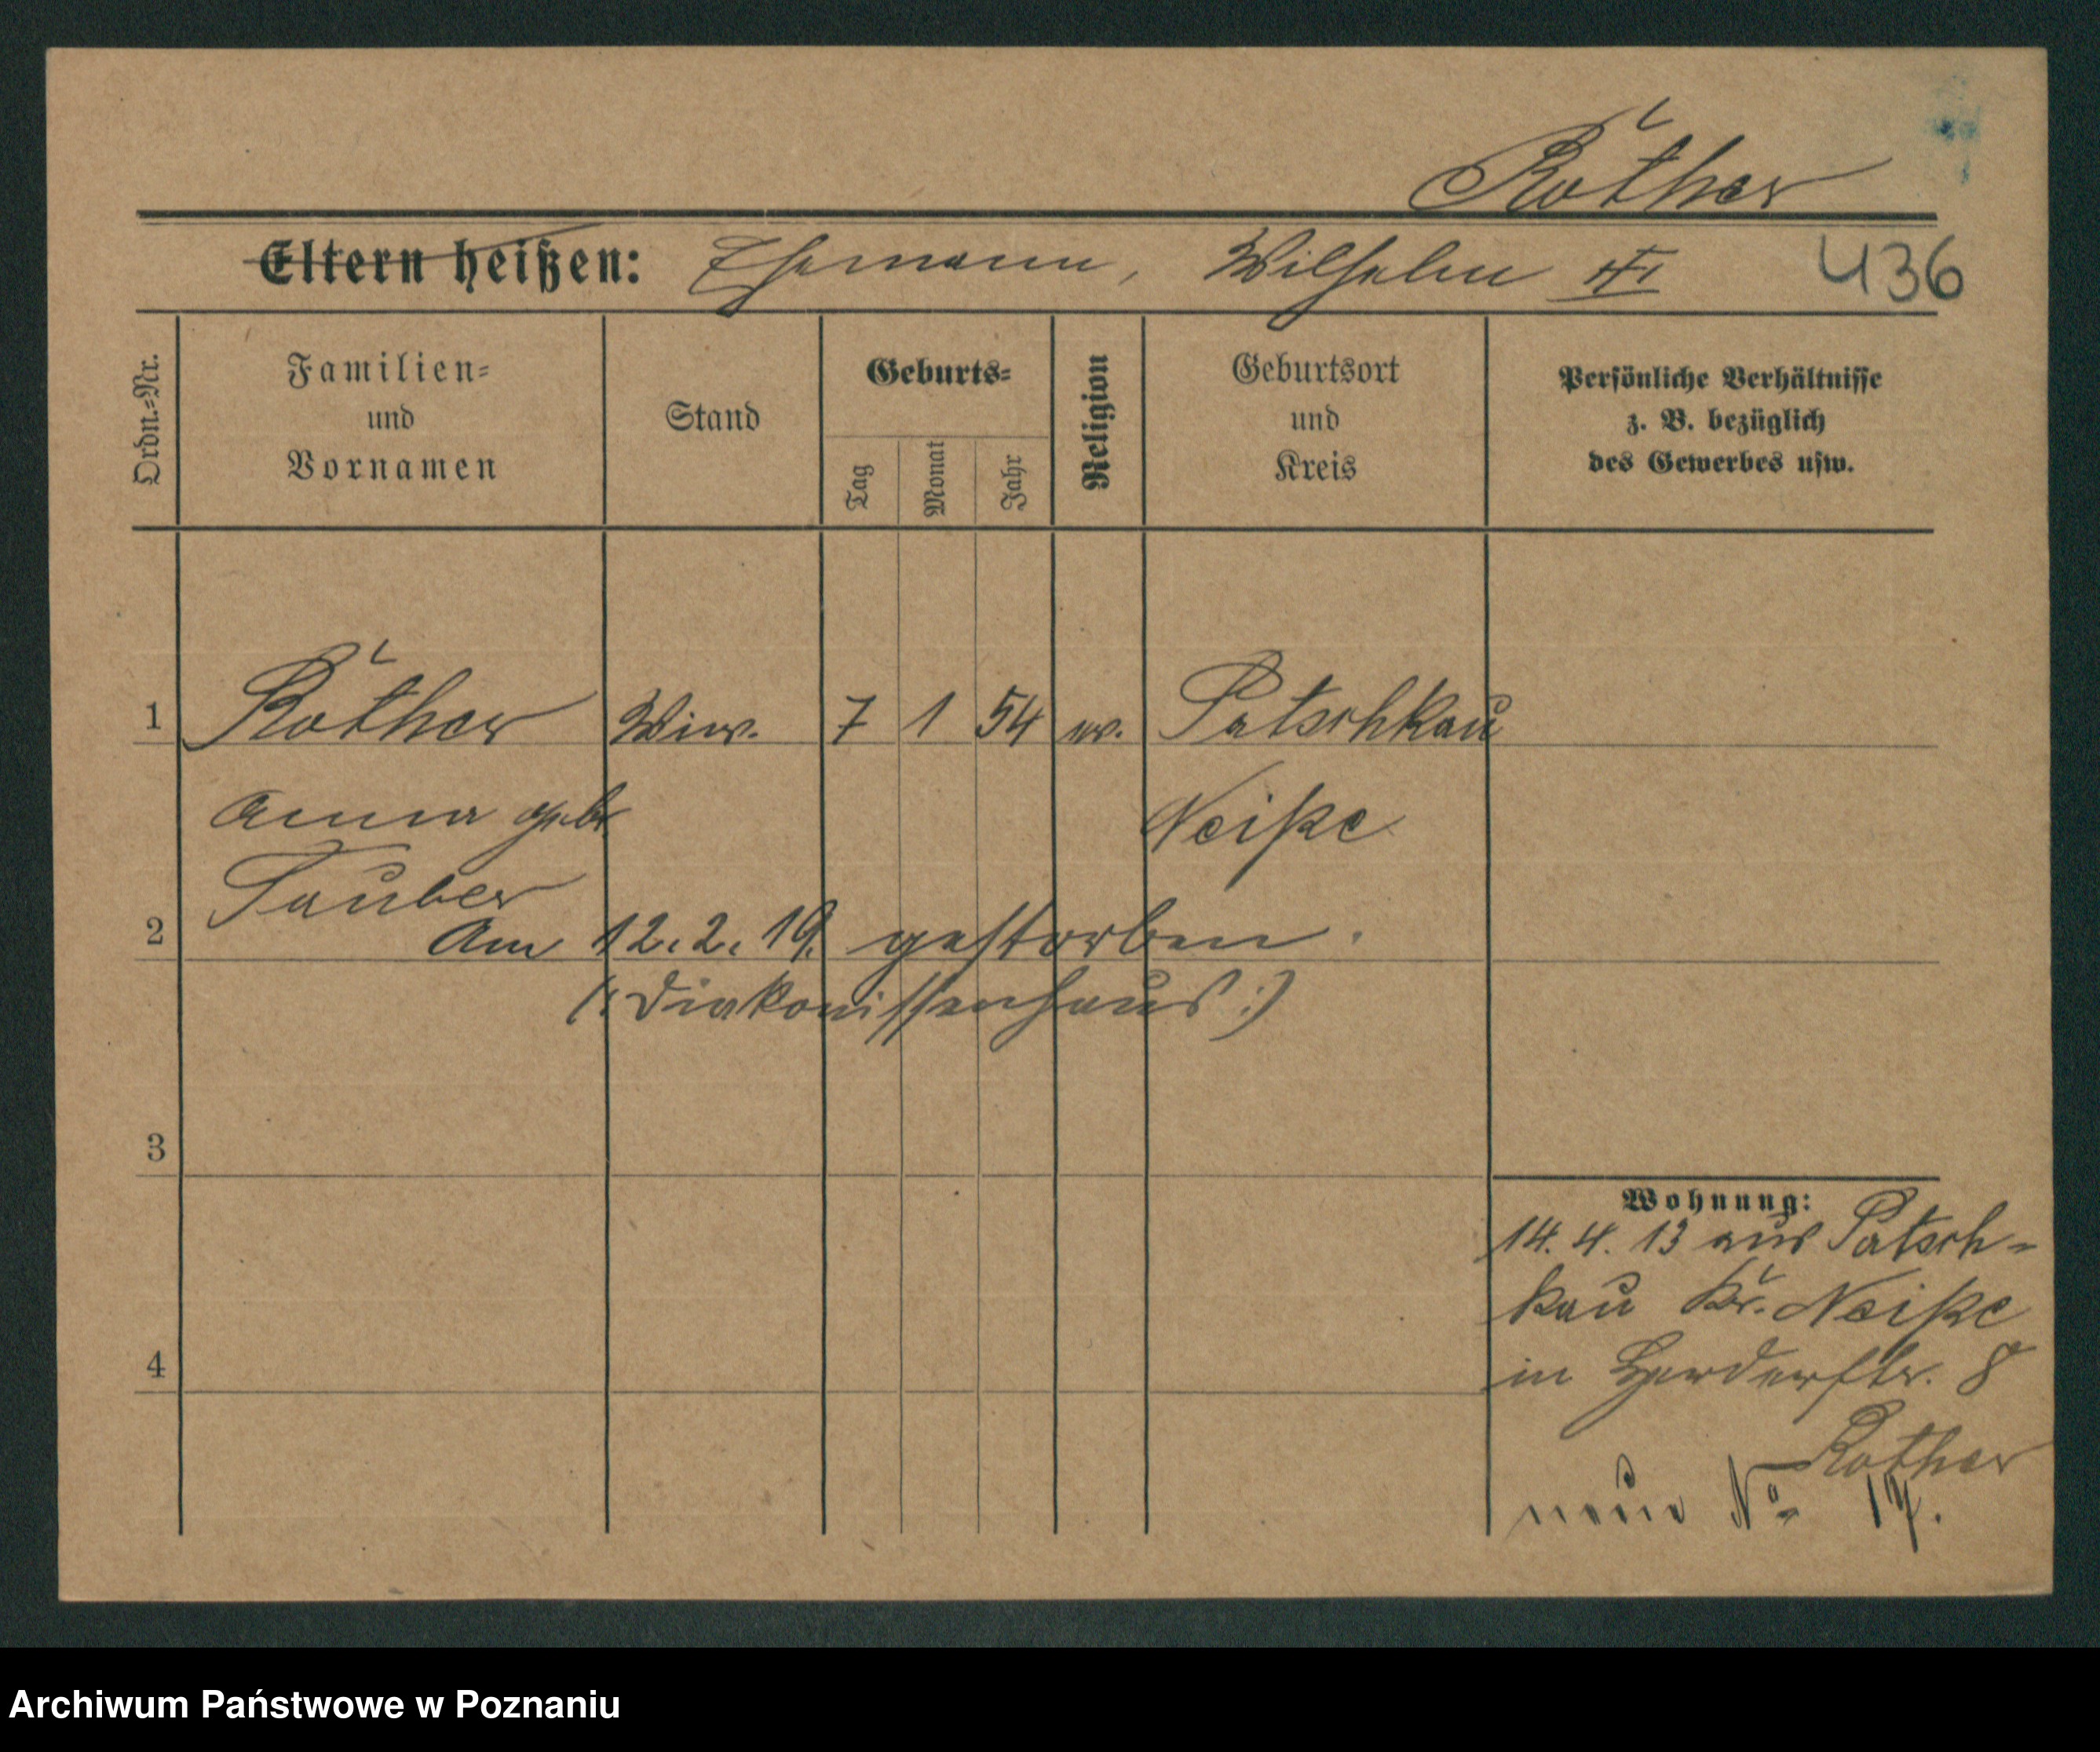 Rother
Eltern heißen: Ehemann, Wilhelm III 436
Ordn.-Nr.
Familien-
und
Vornamen
Stand
Geburts-
Tag
Monat
Jahr
Religion
Geburtsort
und
Kreis
Persönliche Verhältnisse
z. B. bezüglich
des Gewerbes usw.
1 Rother Wiw. 7 1 54 ev. Patschkau
Anna geb. Neiße
Tauber
2 Am 12.2.19. gestorben.
(: Diakonissenhaus :)
3
Wohnung:
14. 4. 13 aus Patsch-
kau Kr. Neiße
4 in Herderstr. 8
Rother
neue No 17.
Archiwum Państwowe w Poznaniu